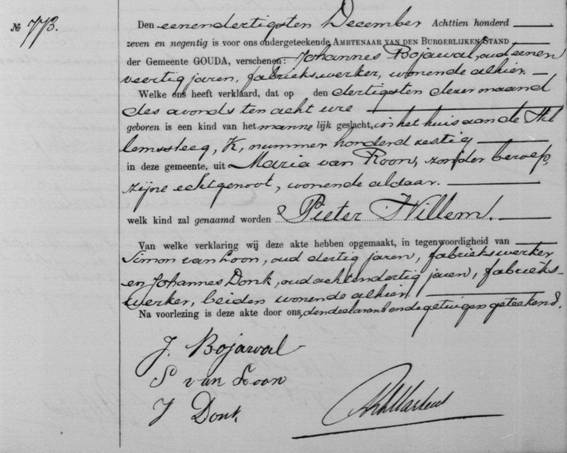 № 773.
Den eenendertigsten December Achttien honderd
zeven en negentig is voor ons ondergeteekende AMBTENAAR VAN DEN BURGERLIJKEN STAND
der Gemeente GOUDA, verschenen: Johannes Bojawal, oud eenen
veertig jaren, fabriekswerker, wonende alhier.
Welke ons heeft verklaard, dat op den dertigsten dezer maand
des avonds ten acht ure
geboren is een kind van het mannelijk geslacht, in het huis aan de
lemssteeg, K, nummer honderd zestig
in deze gemeente, uit Maria van Roon, zonder beroep,
zijne echtgenoot, wonende aldaar.
welk kind zal genaamd worden Pieter Willem.
Van welke verklaring wij deze akte hebben opgemaakt, in tegenwoordigheid van
Simon van Loon, oud dertig jaren, fabriekswerker
en Johannes Donk, oud achtendertig jaren, fabrieks-
werker, beiden wonende alhier
Na voorlezing is deze akte door ons, den declarant en de getuigen geteekend.
J. Bojawal
S van Loon
J Donk